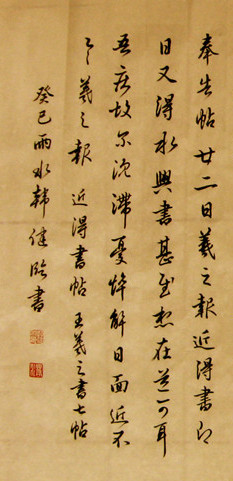 奉告帖廿二日羲之報近得書即
日又得永興書甚慰在道可耳
吾疾故尔沈滯憂悴解日面近不
羲之報 近得書帖 王羲之書七帖
癸巳雨水韩健临書